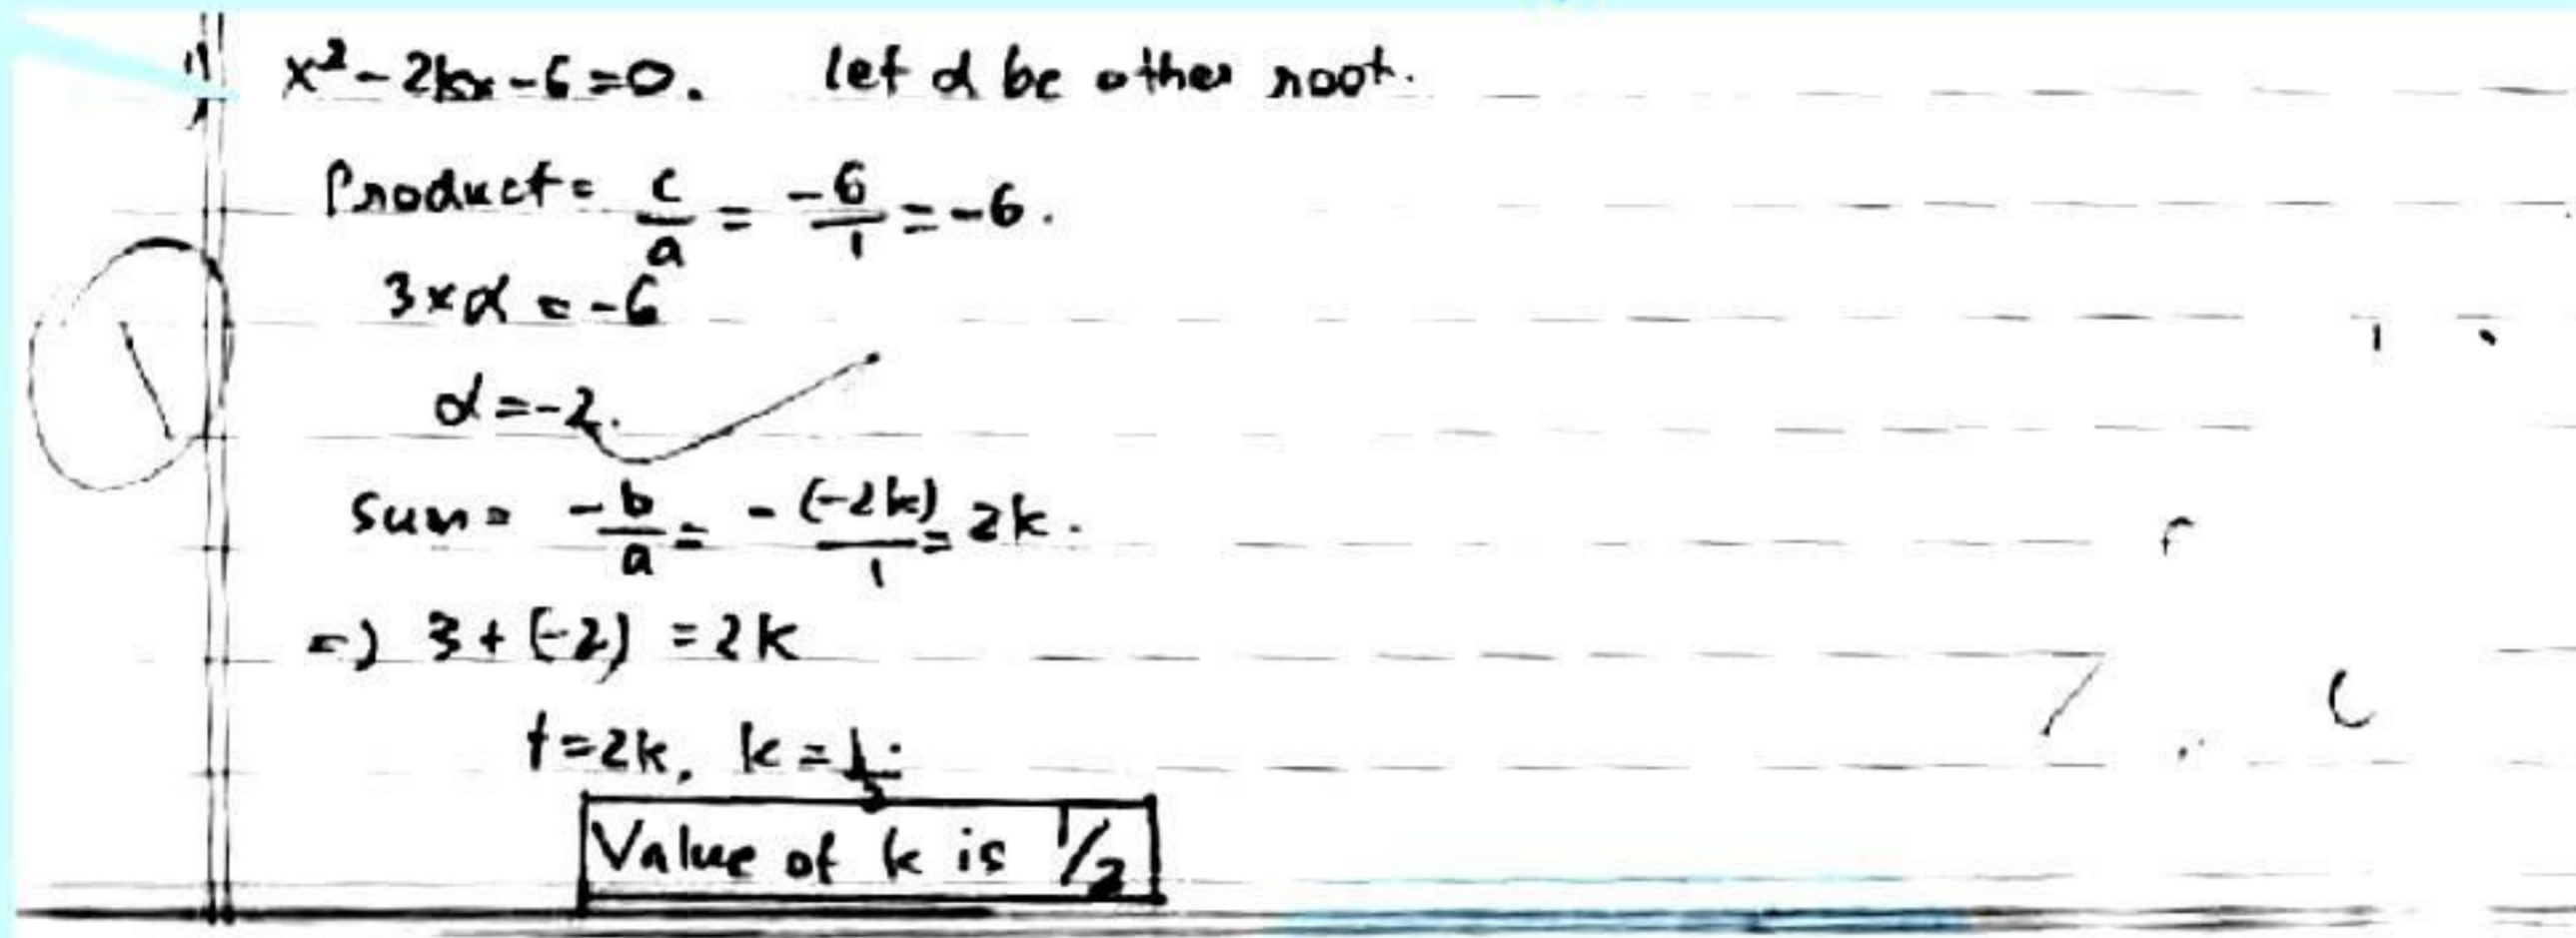 1) x² - 2kx - 6 = 0. let α be other root.
Product = c/a = -6/1 = -6.
3 × α = -6
α = -2.
1
Sum = -b/a = -(-2k)/1 = 2k.
=> 3 + (-2) = 2k
1 = 2k, k = 1/2.
Value of k is 1/2